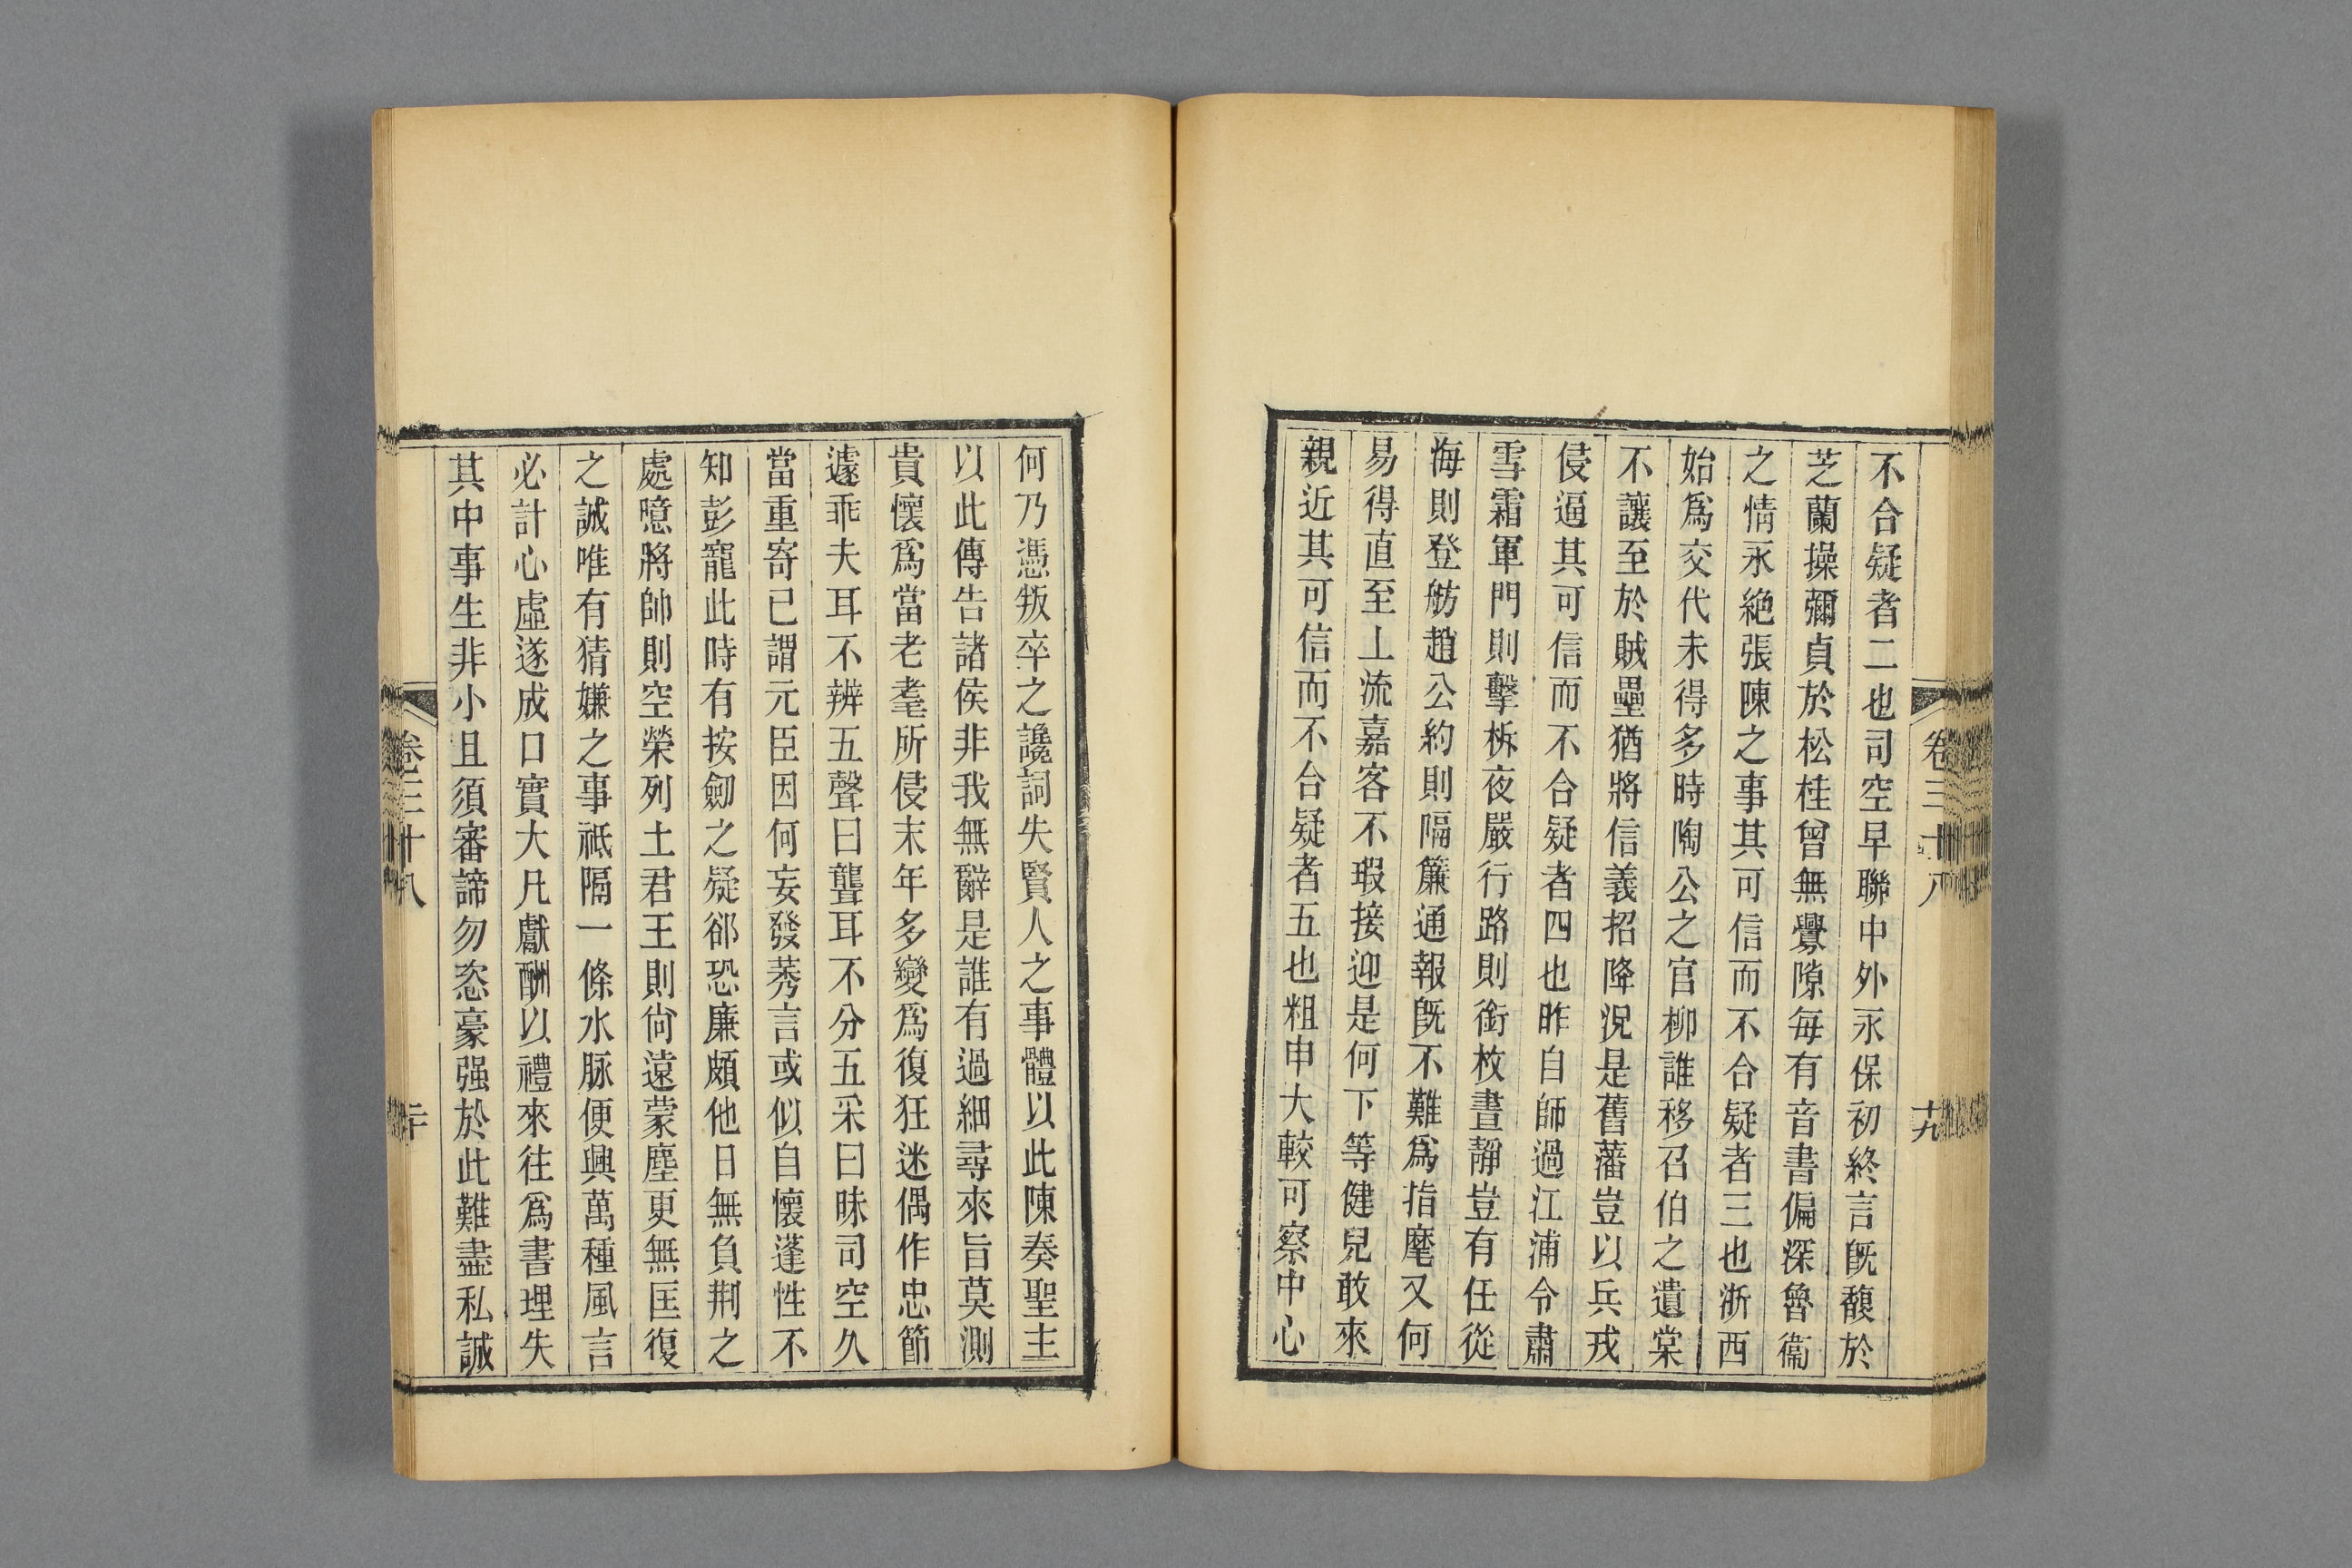 不合疑者二也司空早聯中外永保初終言旣馥於
芝蘭操彌貞於松桂曾無釁隙每有音書偏深魯衞
之情永絶張陳之事其可信而不合疑者三也浙西
始爲交代未得多時陶公之官柳誰移召伯之遺棠
不讓至於賊壘猶將信義招降況是舊藩豈以兵戎
侵逼其可信而不合疑者四也昨自師過江浦令肅
雪霜軍門則擊柝夜嚴行路則銜枚晝靜豈有任從
海則登舫趙公約則隔簾通報旣不難爲指麾又何
易得直至上流嘉客不瑕接迎是何下等健兒敢來
親近其可信而不合疑者五也粗申大較可察中心
卷三十八
十九
何乃憑叛卒之讒詞失賢人之事體以此陳奏聖主
以此傳告諸侯非我無辭是誰有過細尋來旨莫測
貴懷爲當老耄所侵末年多變爲復狂迷偶作忠節
遽乖夫耳不辨五聲曰聾耳不分五采曰昧司空久
當重寄已謂元臣因何妄發莠言或似自懷蓬性不
知彭寵此時有按劒之疑郤恐廉頗他日無負荆之
處噫將帥則空榮列土君王則尙遠蒙塵更無匡復
之誠唯有猜嫌之事祗隔一條水脉便興萬種風言
必計心虛遂成口實大凡獻酬以禮來往爲書理失
其中事生非小且須審諦勿恣豪强於此難盡私誠
卷三十八
二十